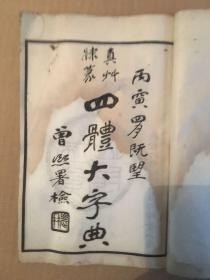 丙寅四月既望
真艸
隸篆
四體大字典
曾熙署檢